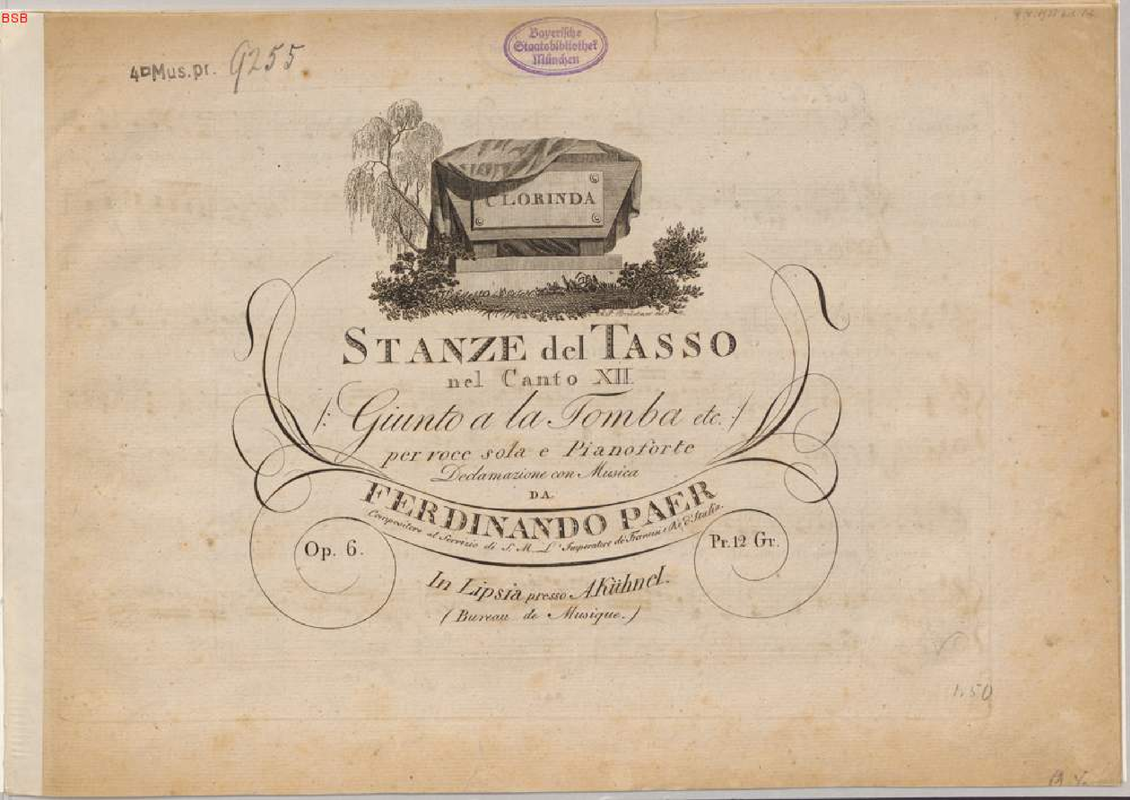 BSB
Bayerische
Staatsbibliothek
München
4° Mus.pr. 9255
CLORINDA
STANZE del TASSO
nel Canto XII.
/: Giunto a la Tomba etc. :/
per voce sola e Pianoforte
Declamazione con Musica
DA
FERDINANDO PAER
Compositore al Servizio di S. M. L' Imperatore de' Francesi e Rè d'Italia.
Op. 6.
Pr. 12 Gr.
In Lipsia presso A. Kühnel.
(Bureau de Musique.)
1.50